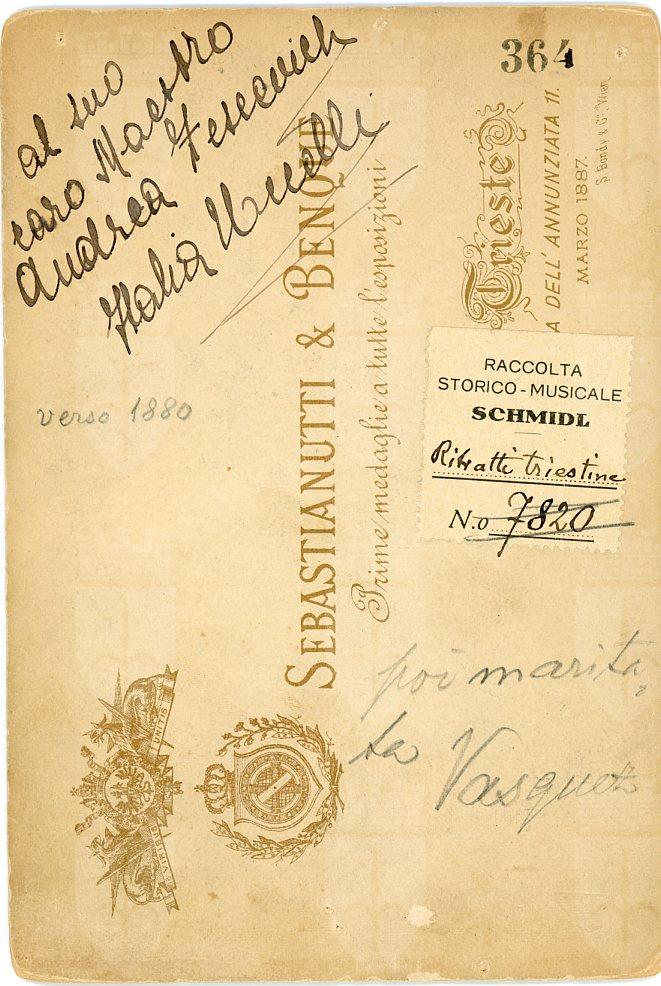 364
al suo
caro Maestro
Andrea
Italia
verso 1880
SEBASTIANUTTI & BENQUE
Prime medaglie a tutte l'esposizioni
Trieste
A DELL' ANNUNZIATA 11.
MARZO 1887.
S. Bondy & Co. Wien
RACCOLTA
STORICO-MUSICALE
SCHMIDL
Ritratti triestine
N.o 7820
poi marita-
ta Vasquez
UNITIS